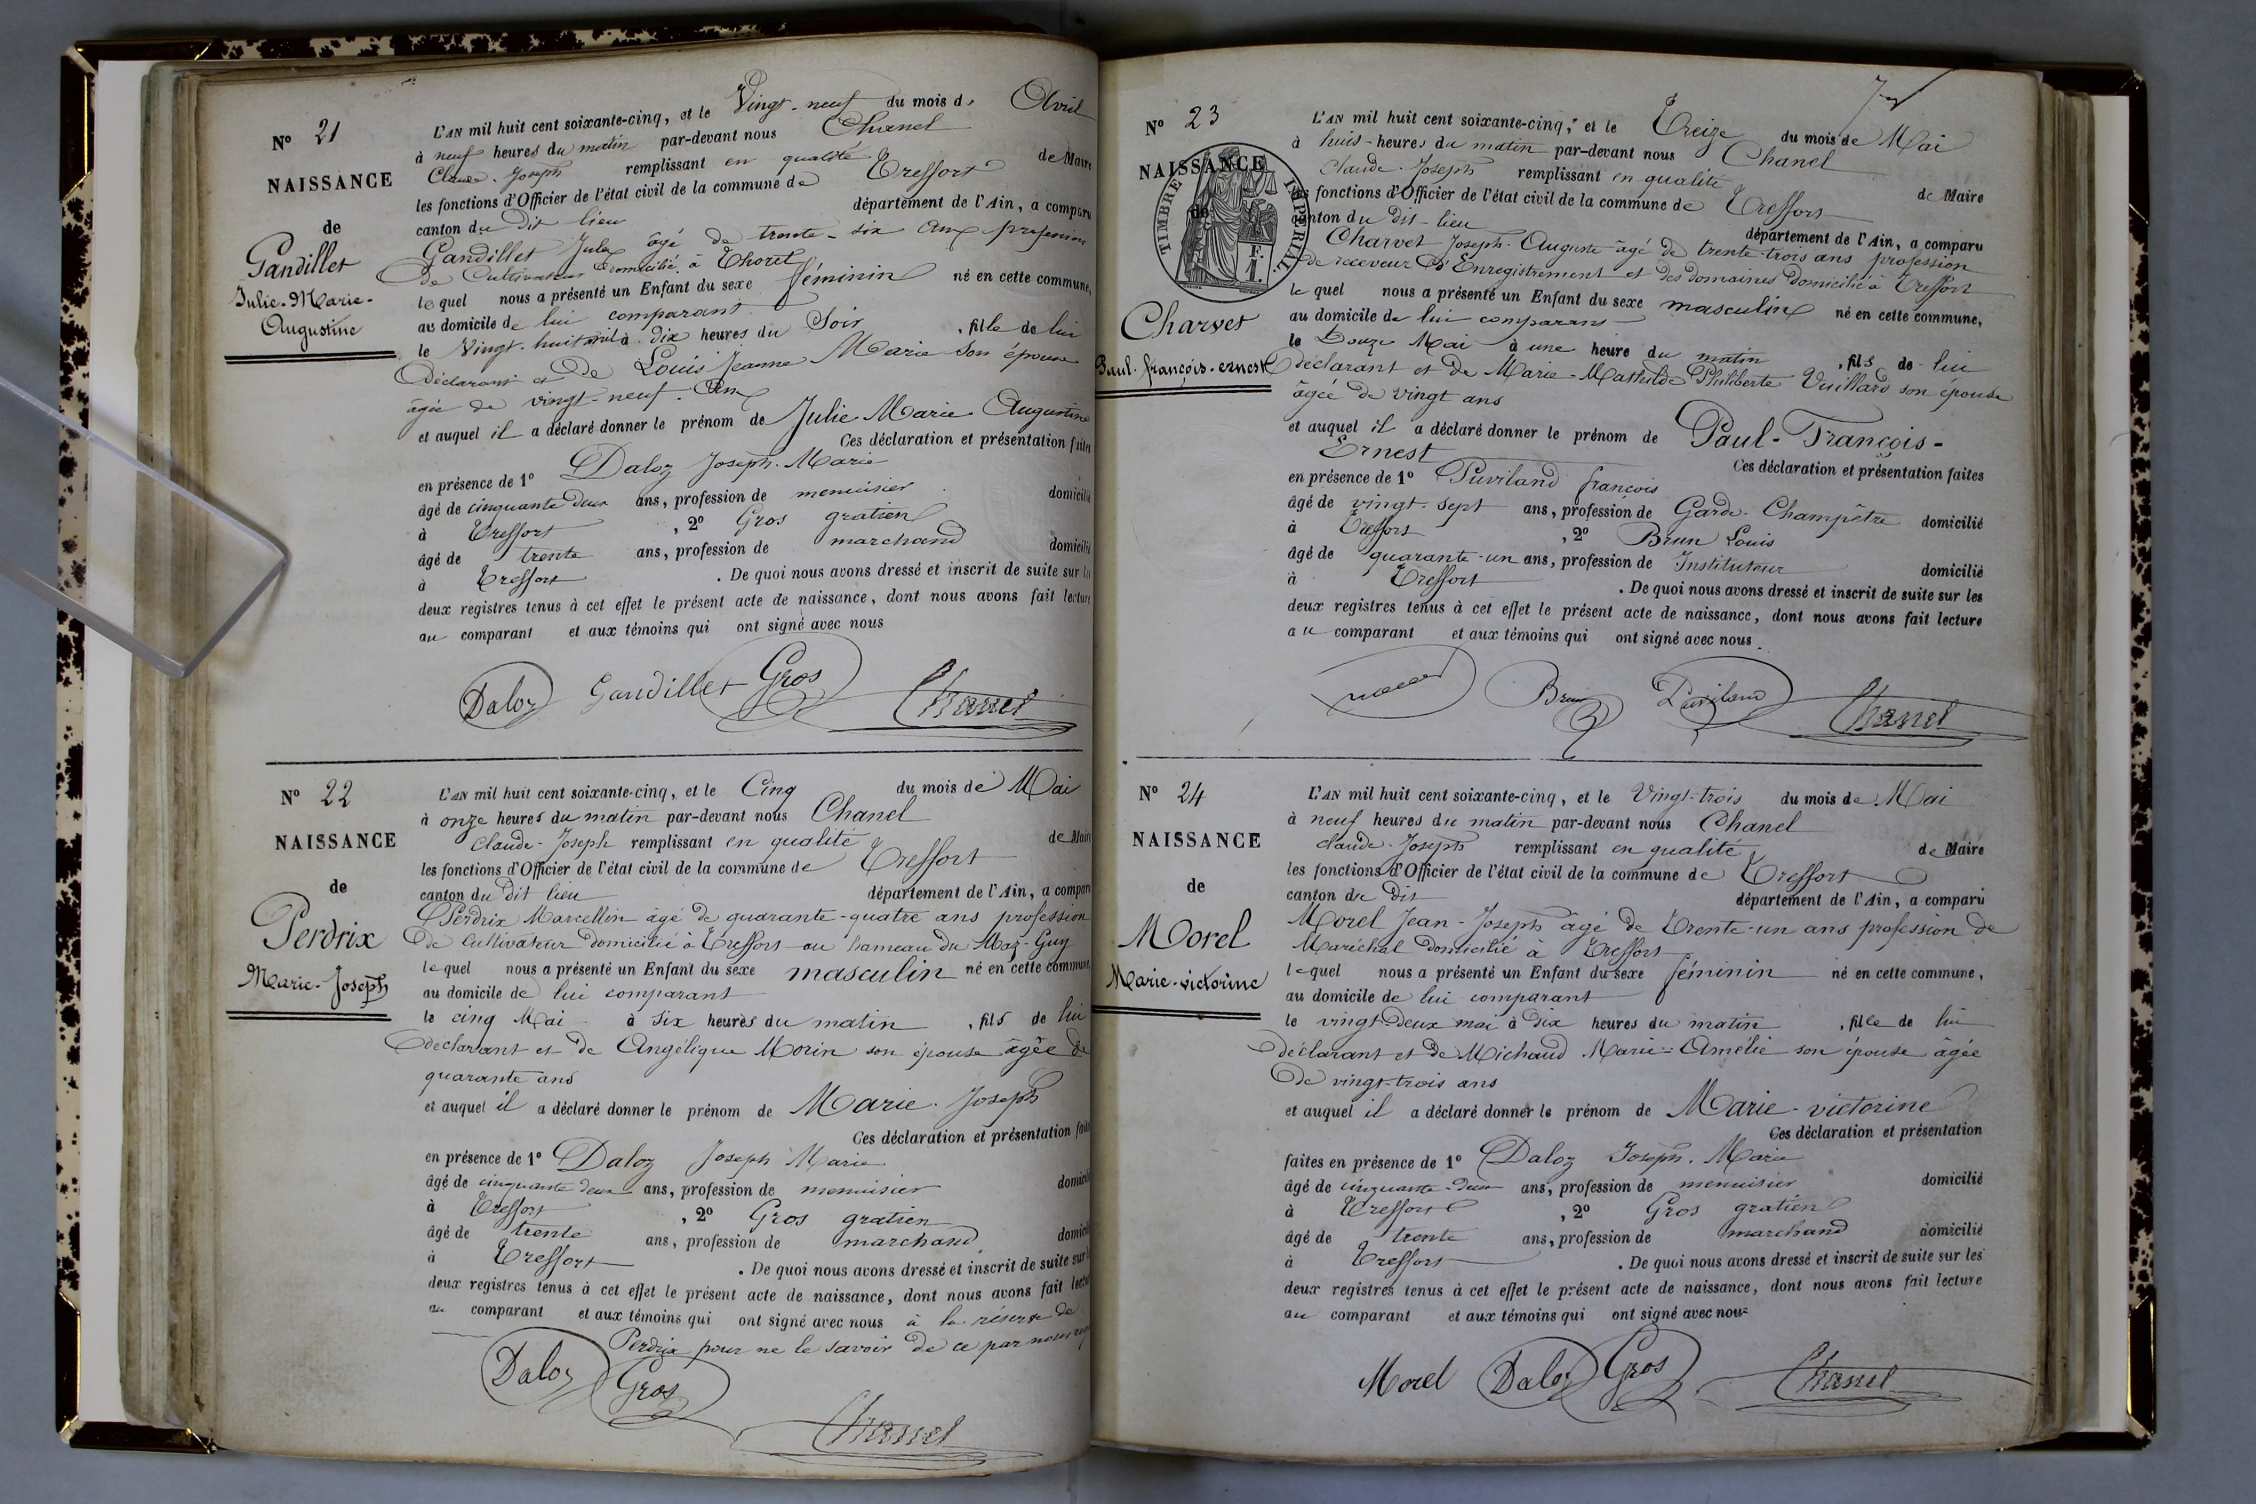 N° 21
NAISSANCE
de
Gandillet
Julie-Marie-
Augustine
L'AN mil huit cent soixante-cinq, et le Vingt-neuf du mois d' Avril
à neuf heures du matin par-devant nous Chanel
Claude-Joseph remplissant en qualité de Maire
les fonctions d'Officier de l'état civil de la commune de Treffort
canton du dit lieu département de l'Ain, a comparu
Gandillet Jules âgé de trente-six ans profession
de Cultivateur domicilié à
lequel nous a présenté un Enfant du sexe féminin né en cette commune,
au domicile de lui comparant
le Vingt-huit avril à dix heures du Soir , fille de lui
déclarant et de Louis Jeanne Marie Son épouse
âgée de vingt-neuf Ans
et auquel il a déclaré donner le prénom de Julie Marie Augustine
Ces déclaration et présentation faites
en présence de 1° Daloz Joseph-Marie
âgé de cinquante deux ans, profession de menuisier domicilié
à Treffort , 2° Gros gratien
âgé de trente ans, profession de marchand domicilié
à Treffort . De quoi nous avons dressé et inscrit de suite sur les
deux registres tenus à cet effet le présent acte de naissance, dont nous avons fait lecture
au comparant et aux témoins qui ont signé avec nous
Daloz Gandillet Gros Chanel
N° 22
NAISSANCE
de
Perdrix
Marie-Joseph
L'AN mil huit cent soixante-cinq, et le Cinq du mois de Mai
à onze heures du matin par-devant nous Chanel
Claude-Joseph remplissant en qualité de Maire
les fonctions d'Officier de l'état civil de la commune de Treffort
canton du dit lieu département de l'Ain, a comparu
Perdrix Marcellin âgé de quarante-quatre ans profession
de Cultivateur domicilié à Treffort au hameau du Maz-Guy
lequel nous a présenté un Enfant du sexe masculin né en cette commune,
au domicile de lui comparant
le cinq Mai à six heures du matin , fils de lui
déclarant et de Angélique Morin son épouse âgée de
quarante ans
et auquel il a déclaré donner le prénom de Marie-Joseph
Ces déclaration et présentation faites
en présence de 1° Daloz Joseph Marie
âgé de cinquante deux ans, profession de menuisier domicilié
à Treffort , 2° Gros gratien
âgé de trente ans, profession de marchand domicilié
à Treffort . De quoi nous avons dressé et inscrit de suite sur les
deux registres tenus à cet effet le présent acte de naissance, dont nous avons fait lecture
au comparant et aux témoins qui ont signé avec nous à la réserve de
Perdrix pour ne le savoir de ce par nous
Daloz Gros
Chanel
N° 23
NAISSANCE
de
TIMBRE IMPERIAL
Charvet
Paul-françois-ernest
L'AN mil huit cent soixante-cinq, et le Treize du mois de Mai
à huit-heures du matin par-devant nous Chanel
Claude-Joseph remplissant en qualité de Maire
les fonctions d'Officier de l'état civil de la commune de Treffort
canton du dit-lieu département de l'Ain, a comparu
Charvet Joseph-Auguste âgé de trente-trois ans profession
de receveur d'Enregistrement et des domaines domicilié à Treffort
lequel nous a présenté un Enfant du sexe masculin né en cette commune,
au domicile de lui comparant
le Douze Mai à une heure du matin , fils de lui
déclarant et de Marie-Mathilde Philiberte Vuillard son épouse
âgée de vingt ans
et auquel il a déclaré donner le prénom de Paul-François-
Ernest
Ces déclaration et présentation faites
en présence de 1° Puviland françois
âgé de vingt-sept ans, profession de Garde-Champêtre domicilié
à Treffort , 2° Brun Louis
âgé de quarante-un ans, profession de Instituteur domicilié
à Treffort . De quoi nous avons dressé et inscrit de suite sur les
deux registres tenus à cet effet le présent acte de naissance, dont nous avons fait lecture
au comparant et aux témoins qui ont signé avec nous.
Brun Puviland Chanel
N° 24
NAISSANCE
de
Morel
Marie-victorine
L'AN mil huit cent soixante-cinq, et le Vingt-trois du mois de Mai
à neuf heures du matin par-devant nous Chanel
claude-Joseph remplissant en qualité de Maire
les fonctions d'Officier de l'état civil de la commune de Treffort
canton du dit département de l'Ain, a comparu
Morel Jean-Joseph âgé de Trente-un ans profession de
Maréchal domicilié à Treffort
lequel nous a présenté un Enfant du sexe féminin né en cette commune,
au domicile de lui comparant
le vingt-deux mai à dix heures du matin , fille de lui
déclarant et de Michaud Marie-Amélie son épouse âgée
de vingt-trois ans
et auquel il a déclaré donner le prénom de Marie-victorine
Ces déclaration et présentation
faites en présence de 1° Daloz Joseph-Marie
âgé de cinquante-deux ans, profession de menuisier domicilié
à Treffort , 2° Gros gratien
âgé de trente ans, profession de marchand domicilié
à Treffort . De quoi nous avons dressé et inscrit de suite sur les
deux registres tenus à cet effet le présent acte de naissance, dont nous avons fait lecture
au comparant et aux témoins qui ont signé avec nous
Morel Daloz Gros Chanel